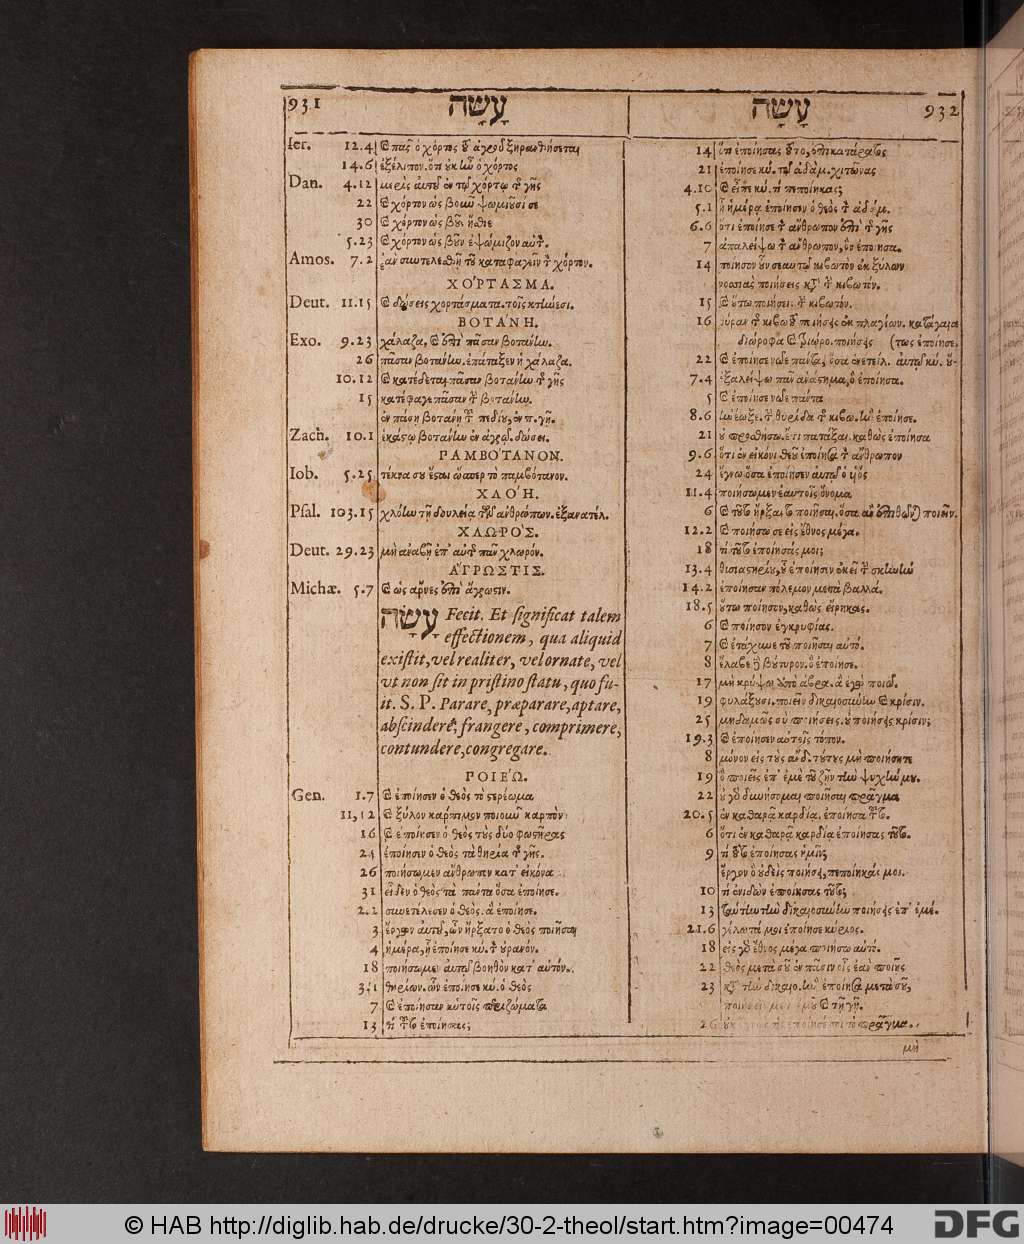 931 עָשָׂה
Ier. 12.4 ϗ πᾶς ὁ χόρτος τοῦ ἀγροῦ ξηρανθήσεται
14.6 ἐξέλιπον. ὅτι οὐκ ἦν ὁ χόρτος
Dan. 4.12 μερὶς αὐτοῦ ἐν τῷ χόρτῳ τῆς γῆς
22 ϗ χόρτον ὡς βοῦν ψωμιοῦσί σε
30 ϗ χόρτον ὡς βοῦς ἤσθιε
5.23 ϗ χόρτον ὡς βοῦν ἐψώμιζον αὐτόν.
Amos. 7.2 ἐὰν συντελεσθῇ τοῦ καταφαγεῖν τὸν χόρτον.
ΧΟΡΤΑΣΜΑ.
Deut. 11.15 ϗ δώσεις χορτάσματα. τοῖς κτήνεσι.
ΒΟΤΑΝΗ.
Exo. 9.23 χάλαζα, ϗ ἐπὶ πᾶσαν βοτάνην.
26 πᾶσαν βοτάνην. ἐπάταξεν ἡ χάλαζα.
10.12 ϗ κατέδεται πᾶσαν βοτάνην τῆς γῆς
15 κατέφαγε πᾶσαν τὴν βοτάνην.
ἐν πάσῃ βοτάνῃ τοῦ πεδίου, ἐν π. γῇ.
Zach. 10.1 ἑκάστῳ βοτάνην ἐν ἀγρῷ. δώσει.
ΡΑΜΒΟΤΑΝΟΝ.
Iob. 5.25 τέκνα σου ἔσται ὥσπερ τὸ παμβότανον.
ΧΛΟΗ.
Psal. 103.15 χλόην τῇ δουλείᾳ τῶν ἀνθρώπων. ἐξανατέλ.
ΧΛΩΡΟΣ.
Deut. 29.23 μὴ ἀναβῇ ἐπ' αὐτὴν πᾶν χλωρόν.
ἈΓΡΩΣΤΙΣ.
Michæ. 5.7 ϗ ὡς ἄρνες ἐπὶ ἄγρωστιν.
עָשָׂה Fecit. Et significat talem
effectionem, qua aliquid
existit, vel realiter, vel ornate, vel
vt non sit in pristino statu, quo fu-
it. S. P. Parare, præparare, aptare,
abscindere, frangere, comprimere,
contundere, congregare.
ΡΟΙΕΩ.
Gen. 1.7 ϗ ἐποίησεν ὁ θεὸς τὸ στερέωμα
11,12 ϗ ξύλον κάρπιμον ποιοῦν καρπὸν
16 ϗ ἐποίησεν ὁ θεὸς τοὺς δύο φωστῆρας
25 ἐποίησεν ὁ θεὸς τὰ θηρία τῆς γῆς.
26 ποιήσωμεν ἄνθρωπον κατ' εἰκόνα
31 εἶδεν ὁ θεὸς τὰ πάντα ὅσα ἐποίησε.
2.2 συνετέλεσεν ὁ θεὸς. ἃ ἐποίησε.
3 ἔργων αὐτοῦ, ὧν ἤρξατο ὁ θεὸς ποιῆσαι
4 ἡμέρᾳ, ᾗ ἐποίησε κύ. τὸν οὐρανόν.
18 ποιήσωμεν αὐτῷ βοηθὸν κατ' αὐτόν.
3.1 θηρίων. ὧν ἐποίησε κύ. ὁ θεὸς
7 ϗ ἐποίησαν ἑαυτοῖς περιζώματα
13 τί τοῦτο ἐποίησας;
עָשָׂה 932
14 ὅτι ἐποίησας τοῦτο, ἐπικατάρατος
21 ἐποίησε κύ. τῷ ἀδάμ. χιτῶνας
4.10 ϗ εἶπε κύ. τί πεποίηκας;
5.1 ᾗ ἡμέρᾳ ἐποίησεν ὁ θεὸς τὸν ἀδάμ.
6.6 ὅτι ἐποίησε τὸν ἄνθρωπον ἐπὶ τῆς γῆς
7 ἀπαλείψω τὸν ἄνθρωπον, ὃν ἐποίησα.
14 ποίησον οὖν σεαυτῷ κιβωτὸν ἐκ ξύλων
νοσσιὰς ποιήσεις κατὰ τὴν κιβωτόν.
15 ϗ οὕτω ποιήσεις τὴν κιβωτόν.
16 θύραν τῆς κιβωτοῦ ποιήσεις ἐκ πλαγίων. κατάγαια
διώροφα ϗ τριώρο. ποιήσεις (τως ἐποίησε.
22 ϗ ἐποίησε νῶε πάντα, ὅσα ἐνετείλ. αὐτῷ κύ. οὕ-
7.4 ἐξαλείψω πᾶν ἀνάστημα, ὃ ἐποίησα.
5 ϗ ἐποίησε νῶε πάντα
8.6 ἠνέωξε. τὴν θυρίδα τῆς κιβω. ἣν ἐποίησε.
21 οὐ προσθήσω. ἔτι πατάξαι. καθὼς ἐποίησα
9.6 ὅτι ἐν εἰκόνι θεοῦ ἐποίησα τὸν ἄνθρωπον
24 ἔγνω ὅσα ἐποίησεν αὐτῷ ὁ υἱὸς
11.4 ποιήσωμεν ἑαυτοῖς ὄνομα
6 ϗ τοῦτο ἤρξαντο ποιῆσαι. ὅσα ἂν ἐπιθῶνται ποιεῖν.
12.2 ϗ ποιήσω σε εἰς ἔθνος μέγα.
18 τί τοῦτο ἐποίησάς μοι;
13.4 θυσιαστηρίου, οὗ ἐποίησεν ἐκεῖ τὴν σκηνὴν
14.2 ἐποίησαν πόλεμον μετὰ βαλλά.
18.5 οὕτω ποίησον, καθὼς εἴρηκας.
6 ϗ ποίησον ἐγκρυφίας.
7 ϗ ἐτάχυνε τοῦ ποιῆσαι αὐτό.
8 ἔλαβε δὲ βούτυρον. ὃ ἐποίησε.
17 μὴ κρύψω ἀπὸ ἀβρα. ἃ ἐγὼ ποιῶ.
19 φυλάξουσι. ποιεῖν δικαιοσύνην ϗ κρίσιν.
25 μηδαμῶς σὺ ποιήσεις. οὐ ποιήσεις κρίσιν;
19.3 ϗ ἐποίησεν αὐτοῖς πότον.
8 μόνον εἰς τοὺς ἄνδ. τούτους μὴ ποιήσητε
19 ὃ ποιεῖς ἐπ' ἐμὲ τοῦ ζῆν τὴν ψυχήν μου.
22 οὐ γὰρ δυνήσομαι ποιῆσαι πρᾶγμα
20.5 ἐν καθαρᾷ καρδίᾳ. ἐποίησα τοῦτο.
6 ὅτι ἐν καθαρᾷ καρδίᾳ ἐποίησας τοῦτο.
9 τί τοῦτο ἐποίησας ἡμῖν;
ἔργον ὃ οὐδεὶς ποιήσει, πεποίηκάς μοι.
10 τί ἐνιδὼν ἐποίησας τοῦτο;
13 ταύτην τὴν δικαιοσύνην ποιήσεις ἐπ' ἐμέ.
21.6 γέλωτά μοι ἐποίησε κύριος.
18 εἰς γὰρ ἔθνος μέγα ποιήσω αὐτό.
22 θεὸς μετὰ σοῦ ἐν πᾶσιν οἷς ἐὰν ποιῇς
23 κατὰ τὴν δικαιο. ἣν ἐποίησα μετὰ σοῦ,
ποιήσεις μετ' ἐμοῦ ϗ τῇ γῇ.
26 οὐκ ἔγνων τίς ἐποίησέ σοι τὸ πρᾶγμα.
μὴ
© HAB http://diglib.hab.de/drucke/30-2-theol/start.htm?image=00474
DFG